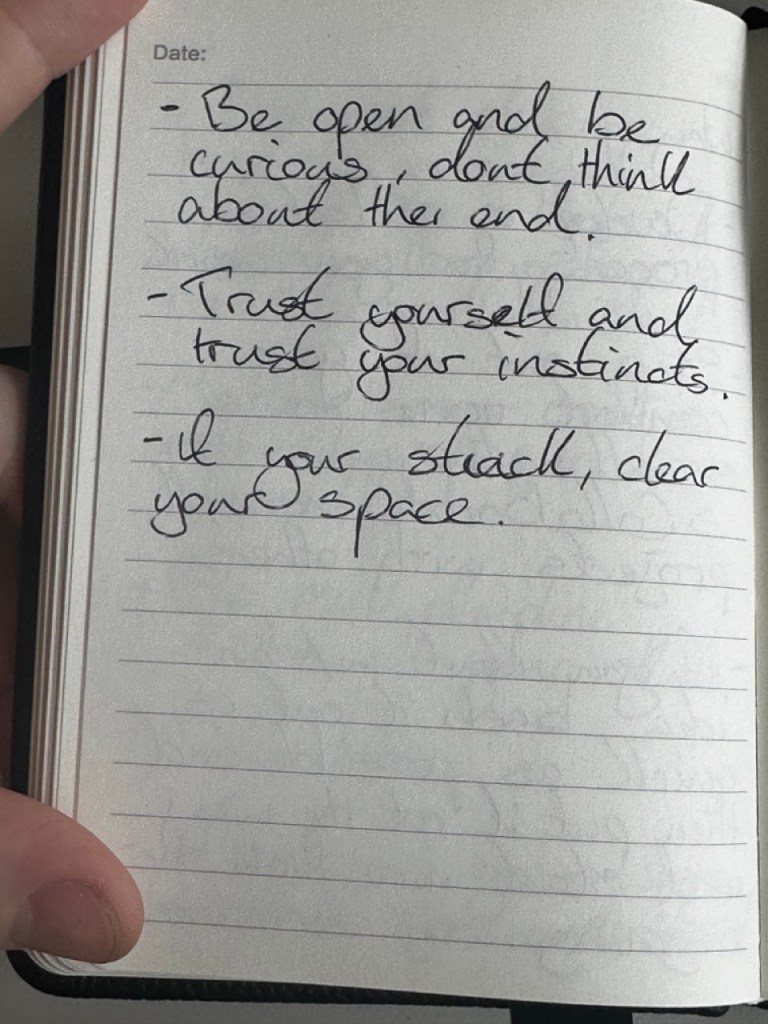 Date:
- Be open and be
curious, dont think
about the end.
- Trust yourself and
trust your instincts.
- If your stuck, clear
your space.